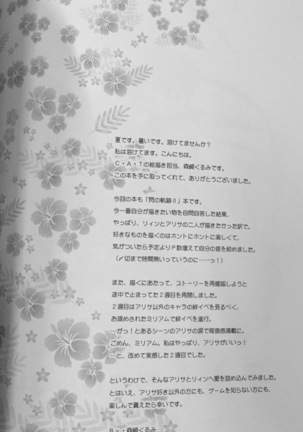 夏です。暑いです。溶けてませんか？
私は溶けてます。こんにちは、
C・A・Tの絵描き担当、森崎くるみです。
この本を手に取ってくれて、ありがとうございました。
今回の本も「閃の軌跡Ⅱ」本です。
今一番自分が描きたい物を自問自答した結果、
やっぱり、リィンとアリサの二人が描きたかった訳で、
好きなものを描くのはホントにホントに楽しくて、
気がついたら予定よりP数増えて自分の首を絞めました。
（〆切まで時間無いっていうのに……っ！）
また、描くにあたって、ストーリーを再確認しようと
途中で止まってた２週目を再開しました。
２週目はアリサ以外のキャラの絆イベを見るべく、
お薦めされたミリアムで絆イベを進行。
……がっ！とあるシーンのアリサの涙で罪悪感満載に。
ごめん、ミリアム。私はやっぱり、アリサがいいっ！
…と、改めて実感した２週目でした。
というわけで、そんなアリサとリィンへ愛を詰め込んでみました。
とはいえ、アリサ好き以外の方にも、ゲームを知らない方にも、
楽しんで貰えたら幸いです。
By 森崎くるみ